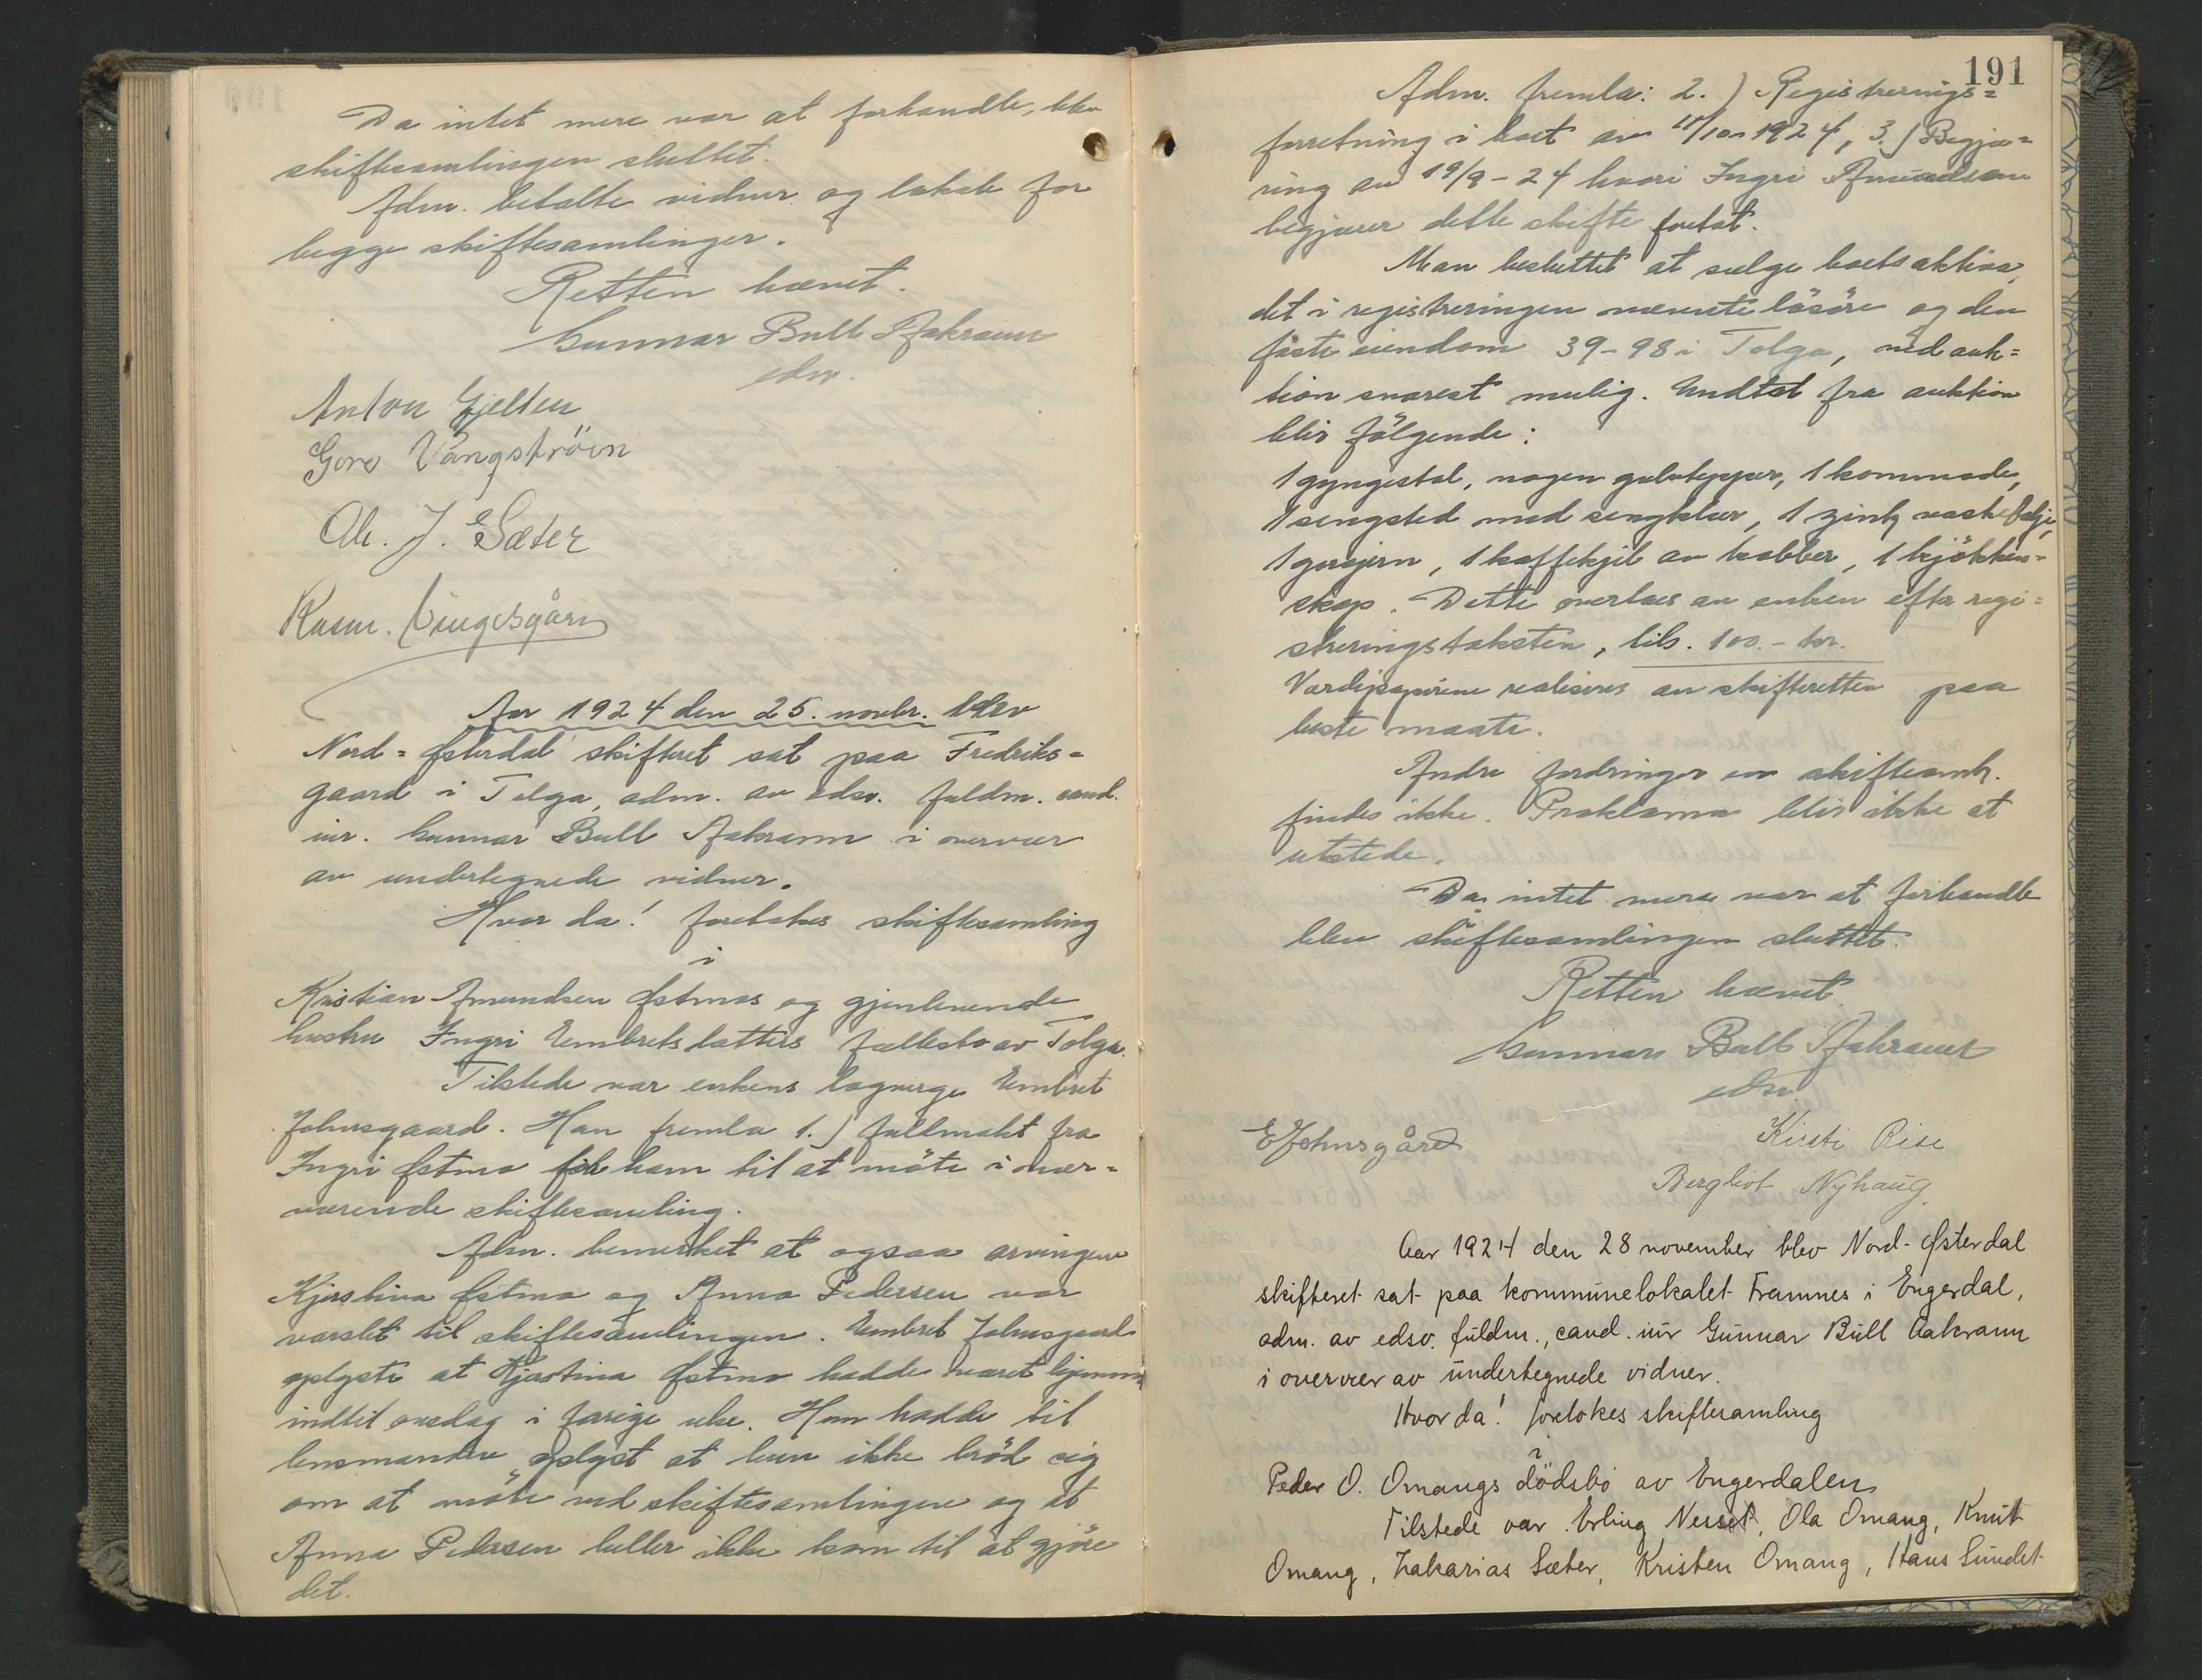 Da intet mere var at forhandle, blev
skiftesamlingen sluttet.
Adm. betalte vidner og lokale for
begge skiftesamlinger.
Retten hævet.
Gunnar Bull Aakrann
edsv.
Anton Gjelten
Gore Vangström
Ole. J. Sæter
Rasm. Vingesgård
Aar 1924 den 25. novbr. blev
Nord=Østerdal skifteret sat paa Fredriks=
gaard i Tolga, adm. av edsv. fuldm. cand.
iur. Gunnar Bull Aakrann i overvær
av undertegnede vidner.
Hvor da! foretokes skiftesamling
i
Kristian Amundsen Østmos og gjenlevende
hustru Ingri Embretsdatters fællesbo av Tolga.
Tilstede var enkens lagverge Embret
Johnsgaard. Han fremla 1.) fullmakt fra
Ingri Østmo for ham til at möte i nær=
værende skiftesamling.
Adm. bemerket at ogsaa arvingene
Kjerstina Østmo og Anna Pedersen var
varslet til skiftesamlingen. Embret Johnsgaard
oplyste at Kjerstina Østmo hadde været hjemme
indtil onsdag i forrige uke. Hun hadde til
lensmanden oplyst at hun ikke bröd sig
om at möte ved skiftesamlingen og at
Anna Pedersen heller ikke kom til at gjöre
det.
191
Adm. fremla: 2.) Registrerings=
forretning i boet av 15/10 1924, 3.) Begjæ=
ring av 19/9-24 hvori Ingri Amundsen
begjærer dette skifte foretat.
Man besluttet at sælge boets aktiva,
det i registreringen nævnte lösöre og den
faste eiendom 39-98 i Tolga, ved auk=
tion snarest mulig. Undtat fra auktion
blir fölgende:
1 gyngestol, nogen gulvtepper, 1 kommode,
1 sengsted med sengklær, 1 zink vaskebalje,
1 gorojern, 1 kaffekjel av kobber, 1 kjökken=
skap. Dette overlaes av enken efter regi=
streringstaksten, tils. 100.- kr.
Værdipapirene realiseres av skifteretten paa
beste maate.
Andre fordringer en skifteomk.
findes ikke. Proklama blir ikke at
utstede.
Da intet mere var at forhandle
blev skiftesamlingen sluttet.
Retten hævet.
Gunnar Bull Aakrann
edsv.
E Johnsgård
Kirsti Rise
Bergliot Nyhaug
Aar 1924 den 28 november blev Nord-Østerdal
skifteret sat paa kommunelokalet Framnes i Engerdal,
adm. av edsv. fuldm., cand. iur Gunnar Bull Aakrann
i overvær av undertegnede vidner.
Hvor da! foretokes skiftesamling
i
Peder O. Omangs dödsbo av Engerdalen
Tilstede var Erling Nesset, Ola Omang, Knut
Omang, Zakarias Sæter, Kristen Omang, Hans Sundet